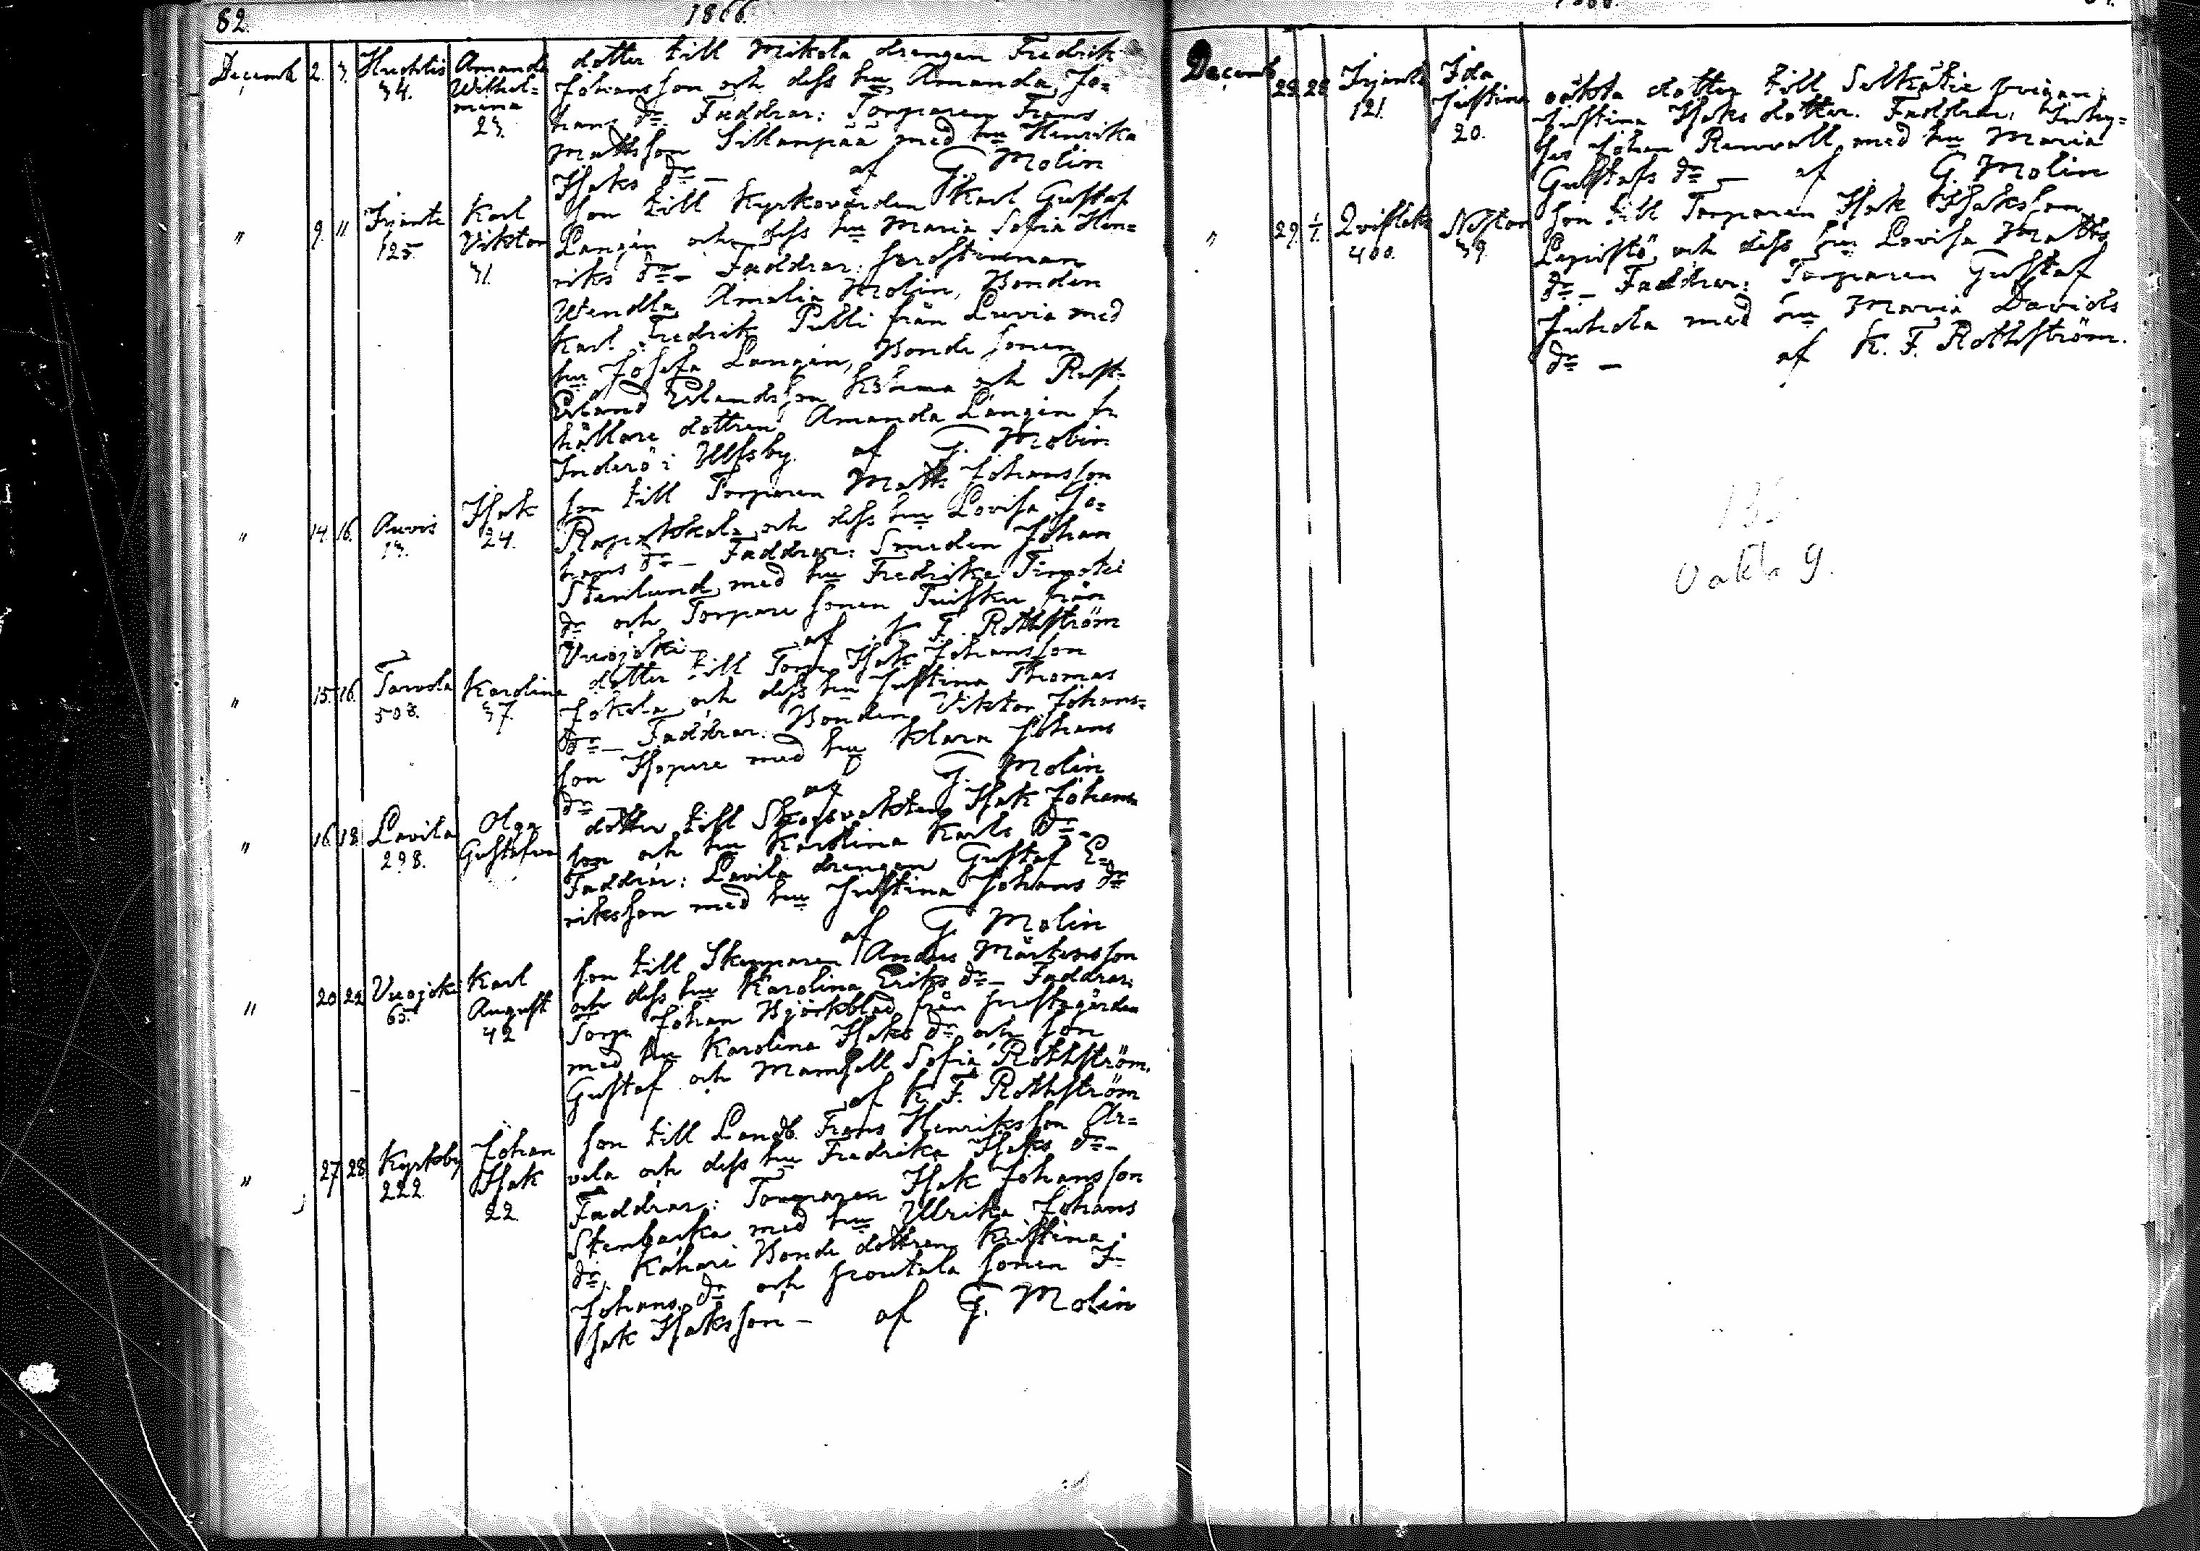 82.
1866.
Decemb 2. 3. Huchtis 34. Amanda Wilhel=mina 23.
dotter till Mikola drengen Fredrik
Johansson och dess hu Amanda Jo=
hans dr. Faddrar: Torparen Frans
Mattsson Sillanpää med hu Henrika
Isaks dr — af G. Molin
" 9. 11 Irjante 125. Karl Viktor 31.
son till Kyrkovärden Karl Gustaf
Langén och dess hu Maria Sofia Hen=
riks dr — Faddrar:
Wendla Amalia Molin, Bonden
Karl Fredrik Pulli från Luvia med
hu Josefa Langén, Bonde sonen
Erland Erlandsson och Rust=
hållare dottren Amanda Langén fr
Inderö i Ulfsby. af G. Molin
" 14. 16. Auvis 13. Isak 24.
son till Torparen Matts Johansson
och dess hu Lovisa Jo=
hans dr — Faddrar: Smeden Johan
Stenlund med hu Fredrika
dr och Torpare sonen Tuisku från
Vuojoki — af K. F. Rothström
" 15. 16. Tarvola 508. Karolina 37.
dotter till Torp. Isak Johansson
Jokela och dess hu Justina Thomas
dr — Faddrar: Bonden Viktor Johans=
son Isopere med hu Klara Johans
dr af G. Molin
" 16. 18. Lavila 298. Olga Gustafva
dotter till Skogsvaktaren Isak Johans
son och hu Karolina Karls dr —
Faddrar: Lavila drengen Gustaf E=
riksson med hu Justina Johans dr
af G. Molin
" 20 22 Vuojoki 65. Karl August 42
son till Skepparen Anders Mårtensson
och dess hu Karolina Eriks dr — Faddrar:
Torp. Johan Björkblad från prestgården
med hu Karolina Isaks dr och son
Gustaf och Mamsell Sofia Rothström.
af K. F. Rothström
" 27 28 Kyrkoby 222 Johan Isak 22
son till Landb. Frans Henriksson Or=
vela och dess hu Fredrika Isaks dr —
Faddrar: Torparen Isak Johansson
Stenbacka med hu Ulrika Johans
dr, Kahari Bonde dottren Kristina
Johans dr och sonen I=
sak Isaksson — af G. Molin
Decemb 28 Irjante 121. Ida Justina 20.
oäkta dotter till pigan
Justina Isaks dotter. Faddrar: Inhy=
ses Johan Renvall med hu Maria
Gustafs dr — af G. Molin
" 29. 1/1. 400. Nestor 39.
son till Torparen Isak Isaksson
Lepistö och dess hu Lovisa Matts
dr — Faddrar: Torparen Gustaf
Juhola med hu Maria Davids
dr — af K. F. Rothström.
oäkta 9.